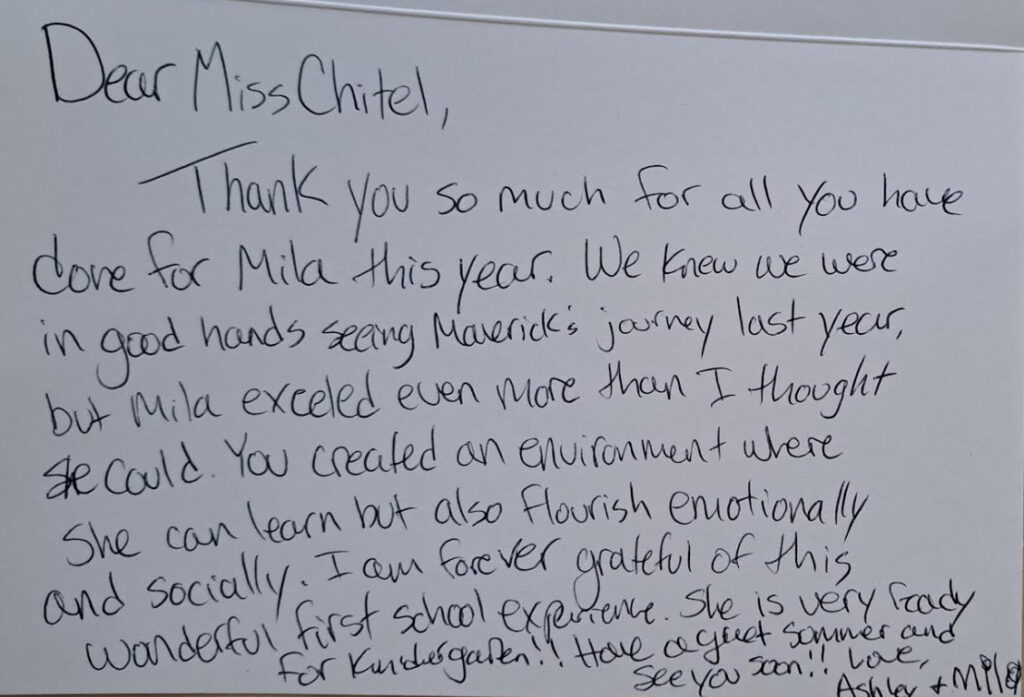 Dear Miss Chitel,
Thank you so much for all you have
done for Mila this year. We knew we were
in good hands seeing Maverick's journey last year,
but Mila exceled even more than I thought
she could. You created an environment where
she can learn but also flourish emotionally
and socially. I am forever grateful of this
wonderful first school experience. She is very ready
for Kundergarten!! Have a great sommer and
see you soon!! Love,
Ashley + Mila